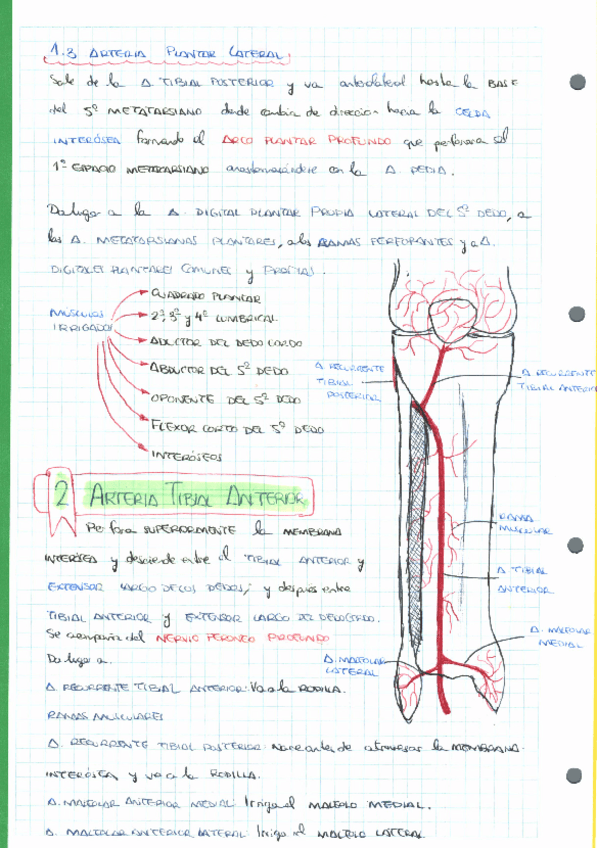 1.3 ARTERIA PLANTAR LATERAL
Sale de la A TIBIAL POSTERIOR y va anterolateral hasta la BASE
del 5º METATARSIANO donde cambia de dirección hacia la CELDA
INTERÓSEA formando el ARCO PLANTAR PROFUNDO que perforara el
1º ESPACIO METATARSIANO anastomosándose con la A. PEDIA.
Da lugar a la A. DIGITAL PLANTAR PROPIA LATERAL DEL 5º DEDO, a
las A. METATARSIANAS PLANTARES, a las RAMAS PERFORANTES y a A.
DIGITALES PLANTARES COMUNES y PROPIAS.
MÚSCULOS IRRIGADOS
CUADRADO PLANTAR
2º, 3º y 4º LUMBRICAL
ADUCTOR DEL DEDO GORDO
ABDUCTOR DEL 5º DEDO
OPONENTE DEL 5º DEDO
FLEXOR CORTO DEL 5º DEDO
INTERÓSEOS
2 ARTERIA TIBIAL ANTERIOR
Perfora SUPERIORMENTE la MEMBRANA
INTERÓSEA y desciende entre el TIBIAL ANTERIOR y
EXTENSOR LARGO DE LOS DEDOS; y después entre
TIBIAL ANTERIOR y EXTENSOR LARGO DEL DEDO GORDO.
Se acompaña del NERVIO PERONEO PROFUNDO
Da lugar a.
A. RECURRENTE TIBIAL ANTERIOR: Va a la RODILLA.
RAMAS MUSCULARES
A. RECURRENTE TIBIAL POSTERIOR: Nace antes de atravesar la MEMBRANA
INTERÓSEA y va a la RODILLA.
A. MALEOLAR ANTERIOR MEDIAL: Irriga el MALEOLO MEDIAL.
A. MALEOLAR ANTERIOR LATERAL: Irriga el MALEOLO LATERAL
A RECURRENTE
TIBIAL
POSTERIOR
A RECURRENTE
TIBIAL ANTERIOR
RAMA
MUSCULAR
A TIBIAL
ANTERIOR
A. MALEOLAR
MEDIAL
A. MALEOLAR
LATERAL